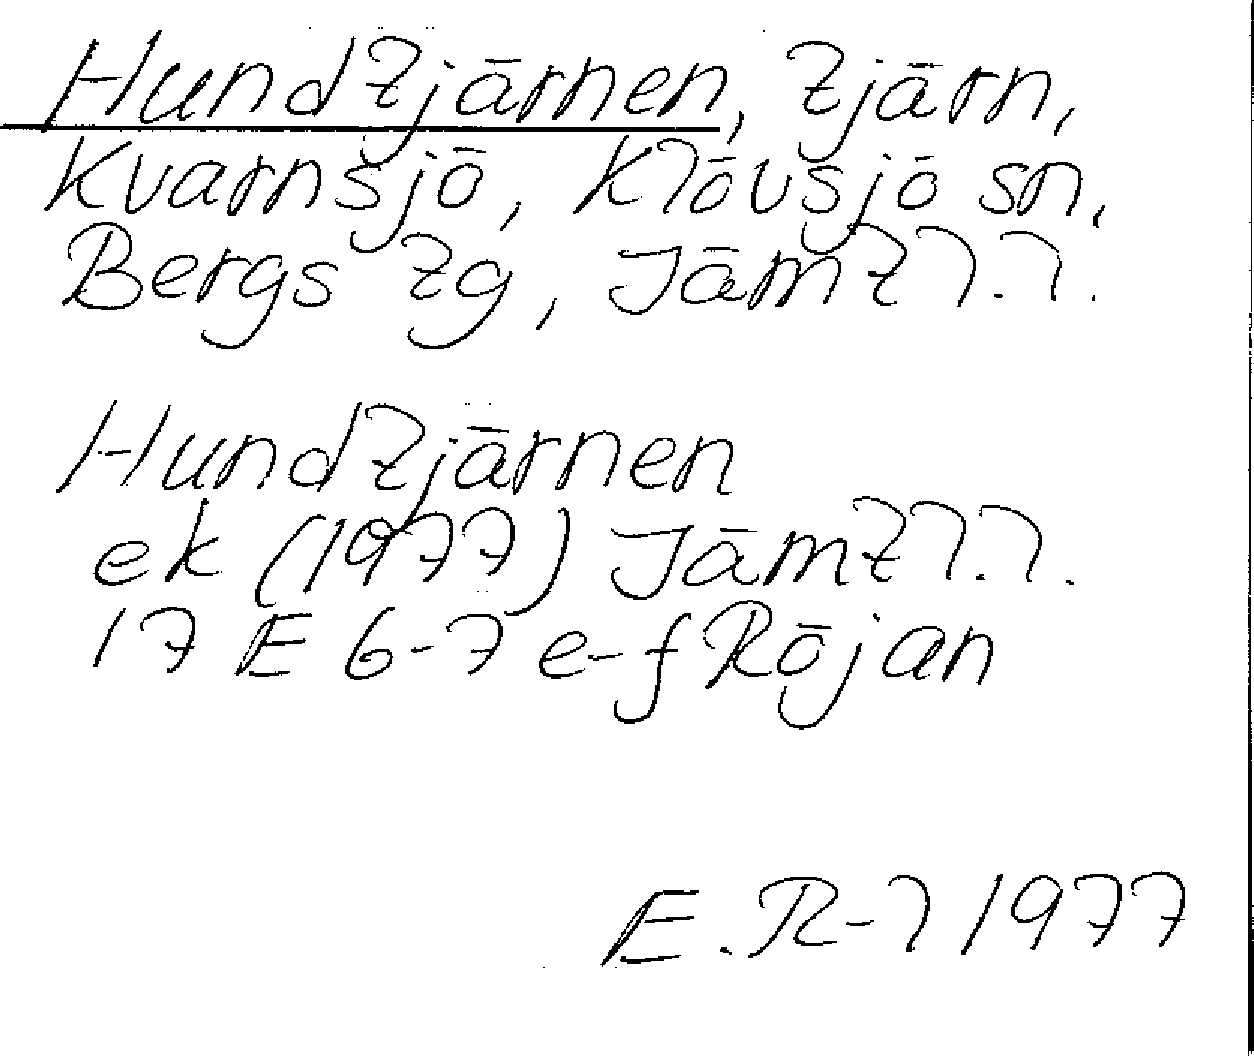 Hundtjärnen, tjärn,
Kvarnsjö, Klövsjö sn,
Bergs tg, Jämtl.l.
Hundtjärnen
ek (1977) Jämtl.l.
17 E 6-7 e-f Röjan
E. R-l 1977